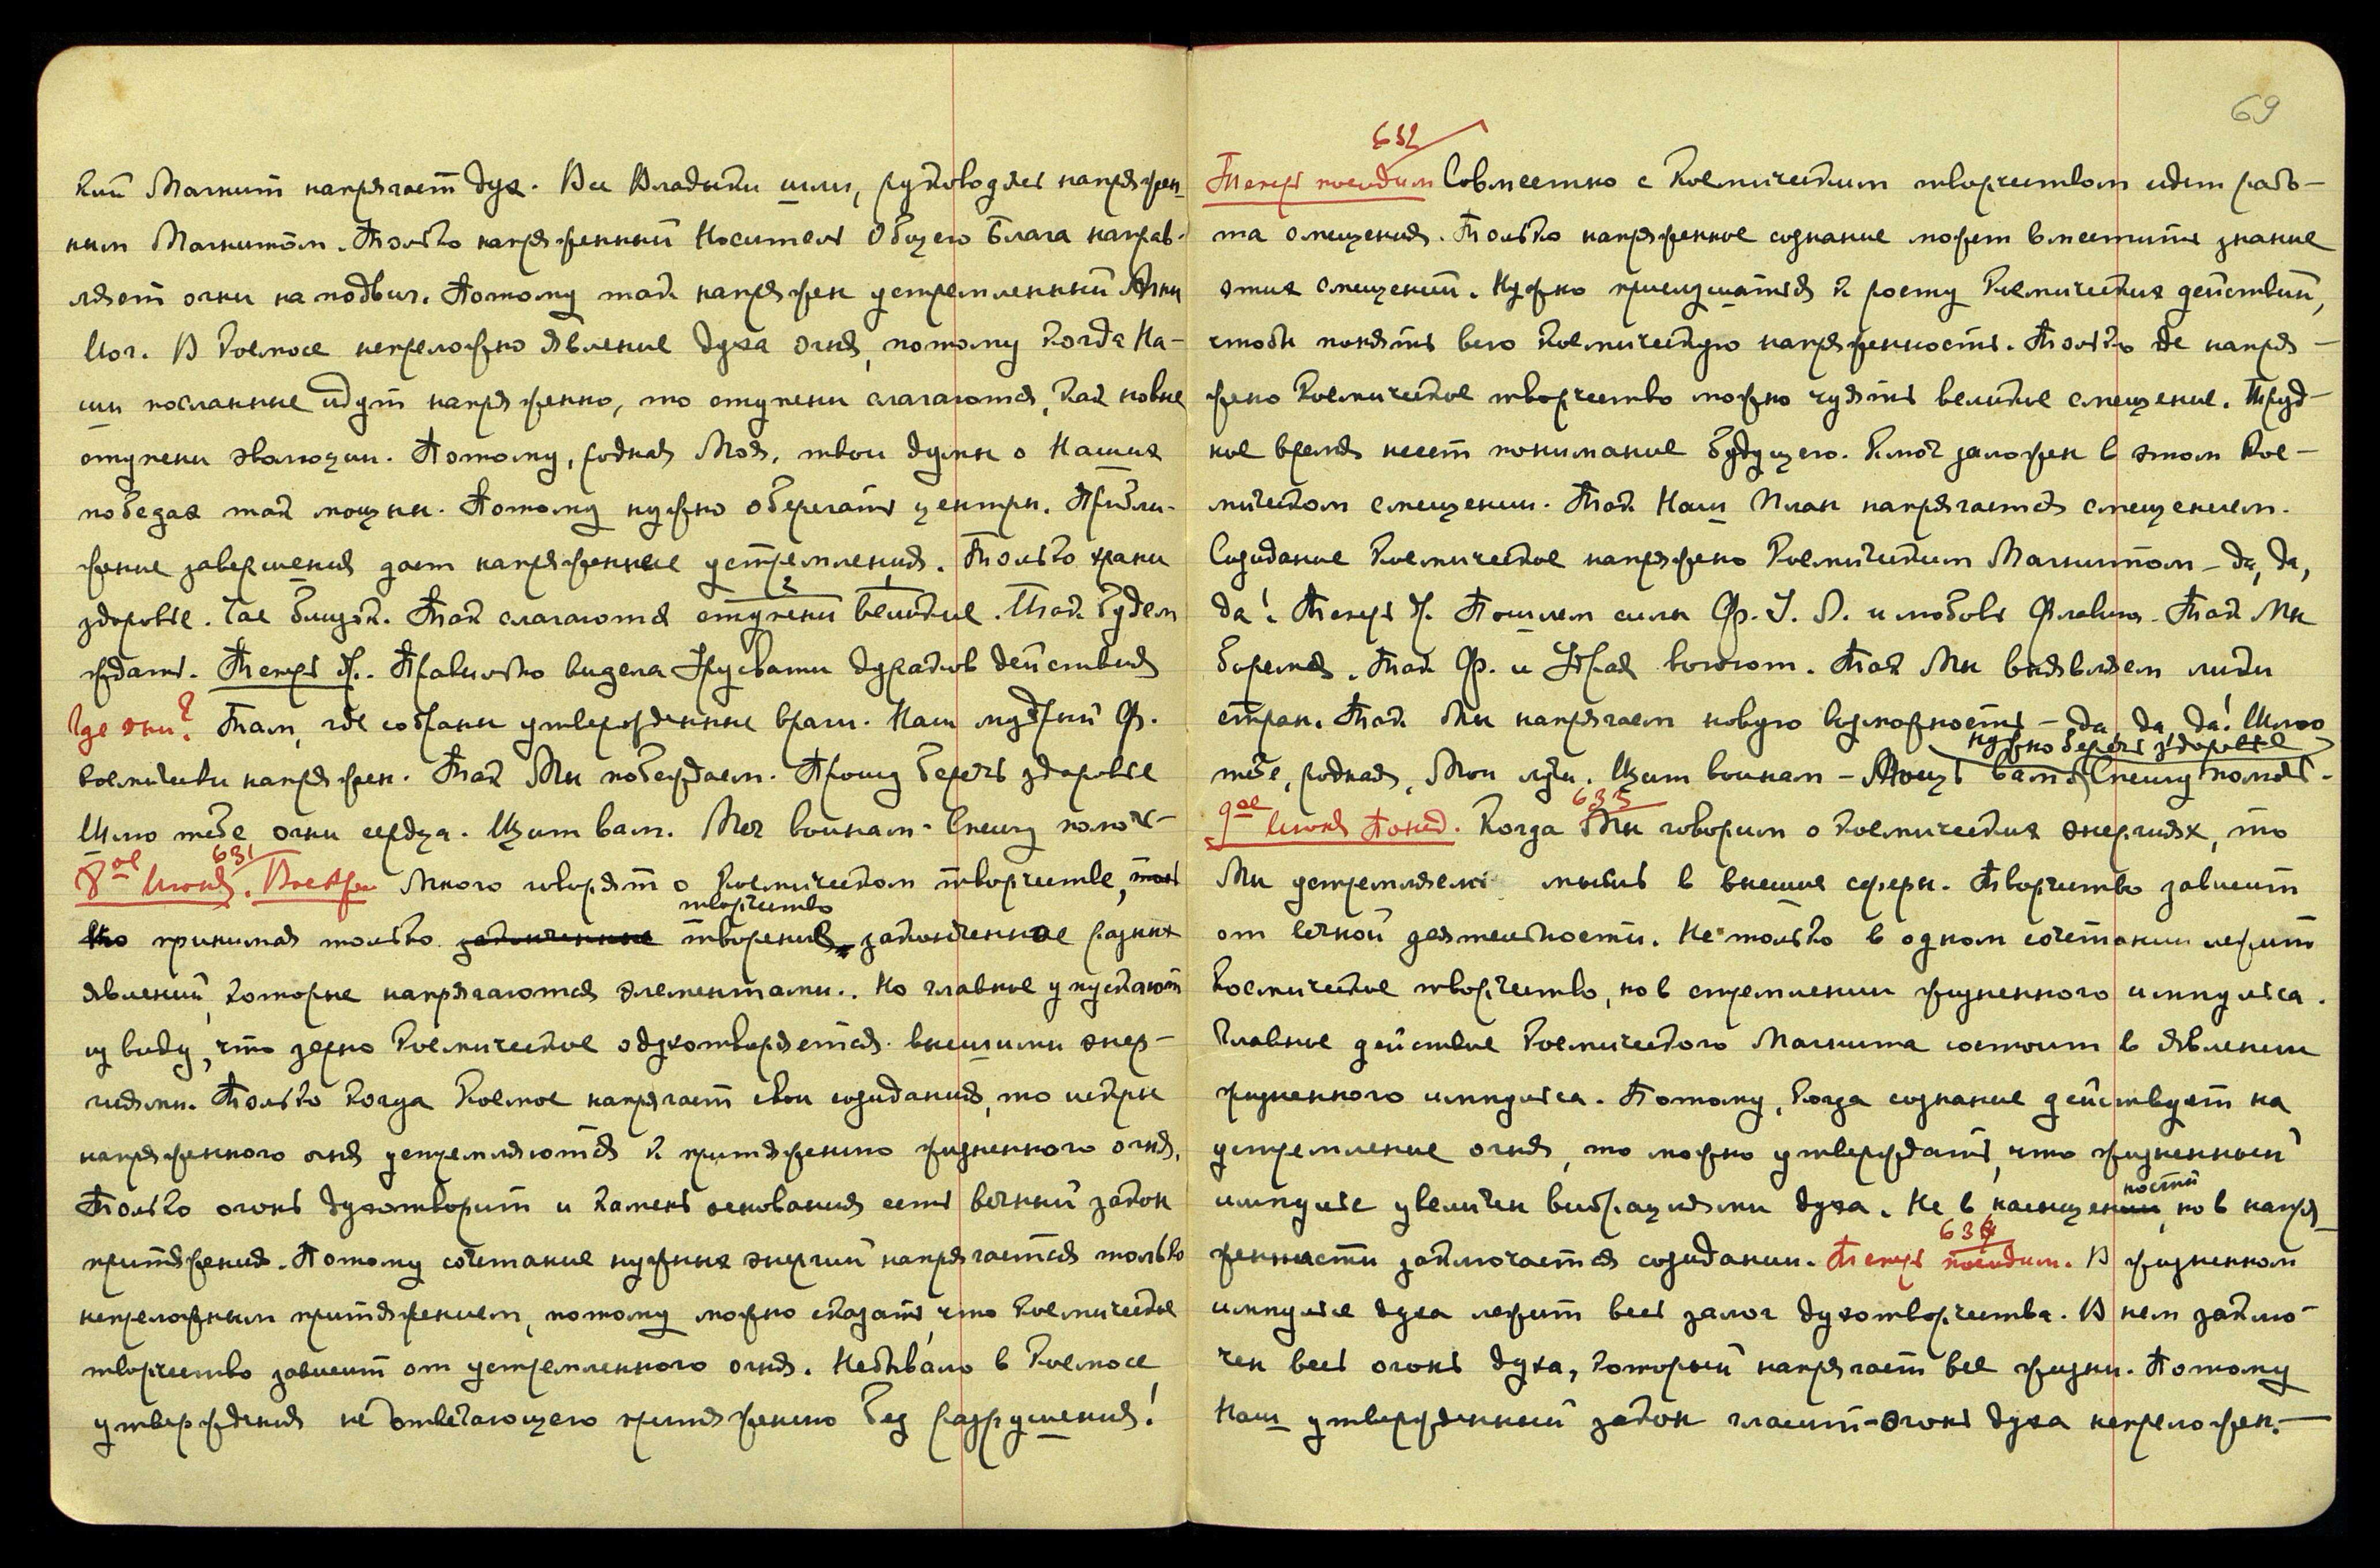 кий Магнит напрягает дух. Все Владыки шли, руководясь напряжен-
ным Магнитом. Только напряженный Носитель Общего Блага направ-
ляет огни на подвиг. Потому так напряжен устремленный Агни
Йог. В Космосе непреложно явление духа огня, потому когда На-
ши посланные идут напряженно, то ступени слагаются, как новые
ступени эволюции. Потому, родная Моя, твои думы о Наших
победах так мощны. Потому нужно оберегать центры. Прибли-
жение завершения дает напряженные устремления. Только храни
здоровье. Час близок. Так слагаются ступени великие. Так будем
2 1
ждать. Теперь др. Правильно видела Урусвати дураков действия
Где они? Там, где собраны утвержденные враги. Наш мудрый Ф.
космически напряжен. Так Мы побеждаем. Прошу беречь здоровье
Шлю тебе огни сердца. Щит вам. Меч воинам. Спешу помочь-
631
8ое Июня. Воскр. Много говорят о Космическом творчестве,
творчество
принимая только законченные творения законченное разных
явлений, которые напрягаются элементами.. Но главное упускают
из виду, что зерно Космическое одухотворяется внешними энер-
гиями. Только когда Космос напрягает свои созидания, то искры
напряженного огня устремляются к притяжению жизненного огня.
Только огонь духотворит и камень основания есть вечный закон
притяжения. Потому сочетание нужных энергий напрягается только
непреложным притяжением, потому можно сказать, что Космическое
творчество зависит от устремленного огня. Небывало в Космосе
утверждения не отвечающего притяжению без разрушения!
69
632
Теперь последим Совместно с Космическим творчеством идет рабо-
та смещения. Только напряженное сознание может вместить знание
этих смещений. Нужно прислушаться к росту Космических действий,
чтобы понять всю Космическую напряженность. Только где напря-
жено Космическое творчество можно чуять великое смещение. Труд-
ное время несет понимание будущего. Ключ заложен в этом Кос-
мическом смещении. Так Наш План напрягается смещением.
Созидание Космическое напряжено Космическим Магнитом – да, да,
да! Теперь др. Пошлем силы Ф. У. Л. и любовь Флавию. Так Мы
боремся. Так Ф. и Удрая воюют. Так Мы выявляем лики
стран. Так Мы напрягаем новую возможность – да, да, да! Шлю
нужно беречь здоровье
тебе, родная, Мои лучи. Щит воинам – Мощь вам. Спешу помочь-
633
9ое Июня Понед. Когда Мы говорим о Космических энергиях, то
Мы устремляем мысль в высшие сферы. Творчество зависит
от вечной деятельности. Не только в одном сочетании лежит
Космическое творчество, но в стремлении жизненного импульса.
Главное действие Космического Магнита состоит в явлении
жизненного импульса. Потому, когда сознание действует на
устремление огня, то можно утверждать, что жизненный
импульс увеличен вибрациями духа. Не в насыщенности, но в напря-
634
женности заключается созидании. Теперь последим. В жизненном
импульсе духа лежит весь залог духотворчества. В нем заклю-
чен весь огонь духа, который напрягает все жизни. Потому
Наш утвержденный закон гласит – огонь духа непреложен. –